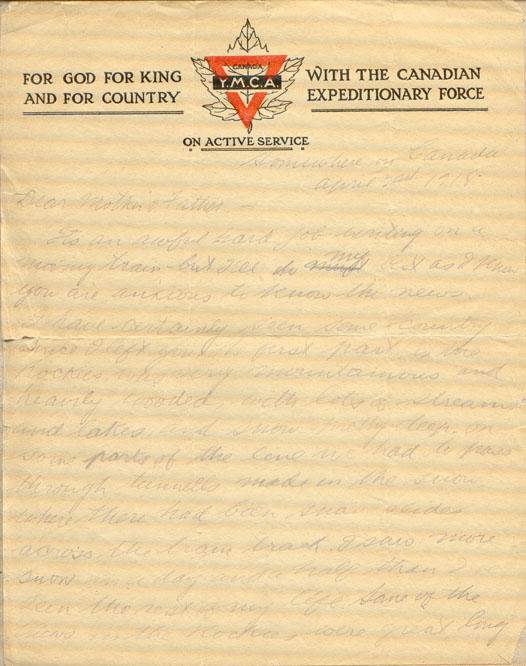 FOR GOD FOR KING
AND FOR COUNTRY
CANADA
Y.M.C.A.
WITH THE CANADIAN
EXPEDITIONARY FORCE
ON ACTIVE SERVICE
Somewhere in Canada
April 1918
Dear Mother & Father –
Its an awful hard job writing on a
moving train but I'll do my best as I know
you are anxious to know the news.
I have certainly seen some country
since I left you the first part is the
Rockies was very mountainous and
heavily wooded with lots of streams
and lakes and snow pretty deep, on
some parts of the line we had to pass
through tunnells made in the snow
where there had been snow slides
across the train track. I saw more
snow in a day and a half than I
seen the rest of my life. Some of the
in the Rockies were great long